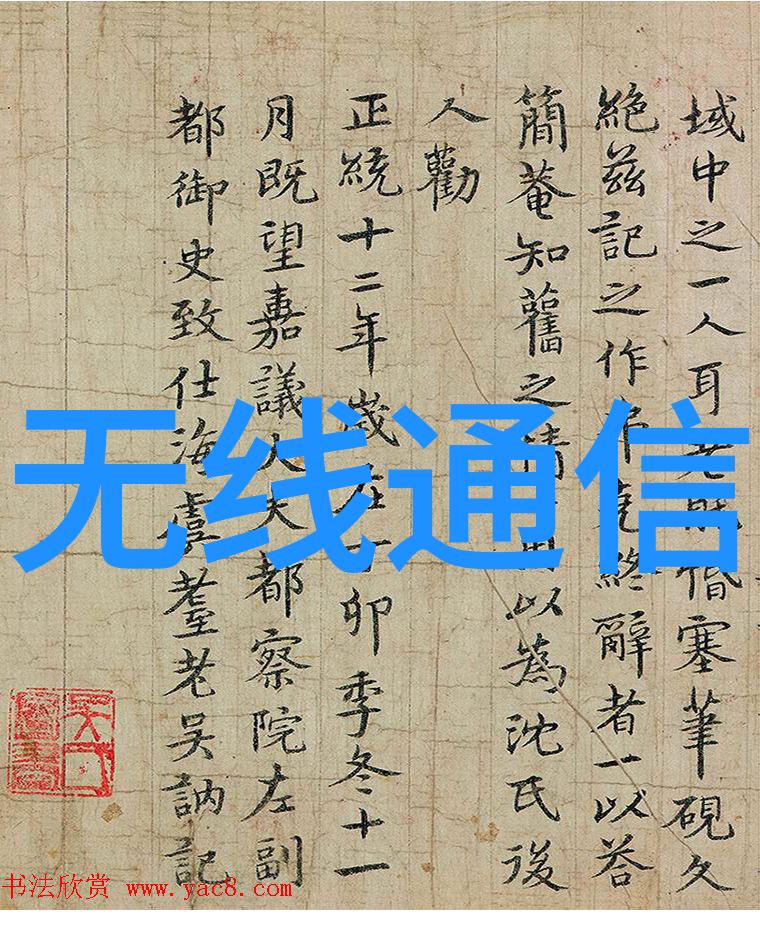 域中之一人耳老惛塞筆硯久
絶茲記之作弗克終辭者一以荅
簡菴知舊之情以為沈氏後
人勸
正統十二年歲在丁卯季冬十一
月既望嘉議大夫都察院左副
都御史致仕海虞耋老吳訥記
无线通信
书法欣赏 www.yac8.com